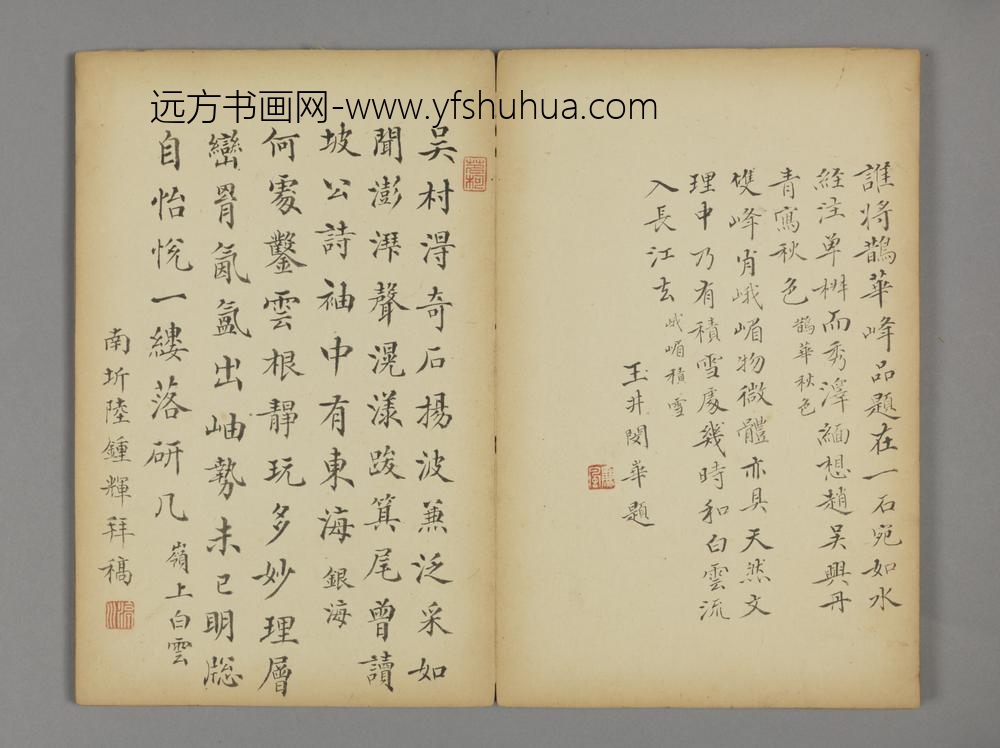 远方书画网-www.yfshuhua.com
誰將鵲華峰品題在一石宛如水
经注单椒而秀澤緬想趙吴興丹
青寫秋色 鵲華秋色
雙峰肖峨嵋物微體亦具天然文
理中乃有積雪處幾時和白雲流
入長江去 峨嵋積雪
玉井閔華題
吴村淂奇石揚波兼泛采如
聞澎湃聲滉漾跋箕尾曾讀
坡公詩袖中有東海 銀海
何處鑿雲根靜玩多妙理層
巒胥氤氲出岫勢未已明牎
自怡悅一縷落研几 嶺上白雲
南圻陸鍾輝拜稿